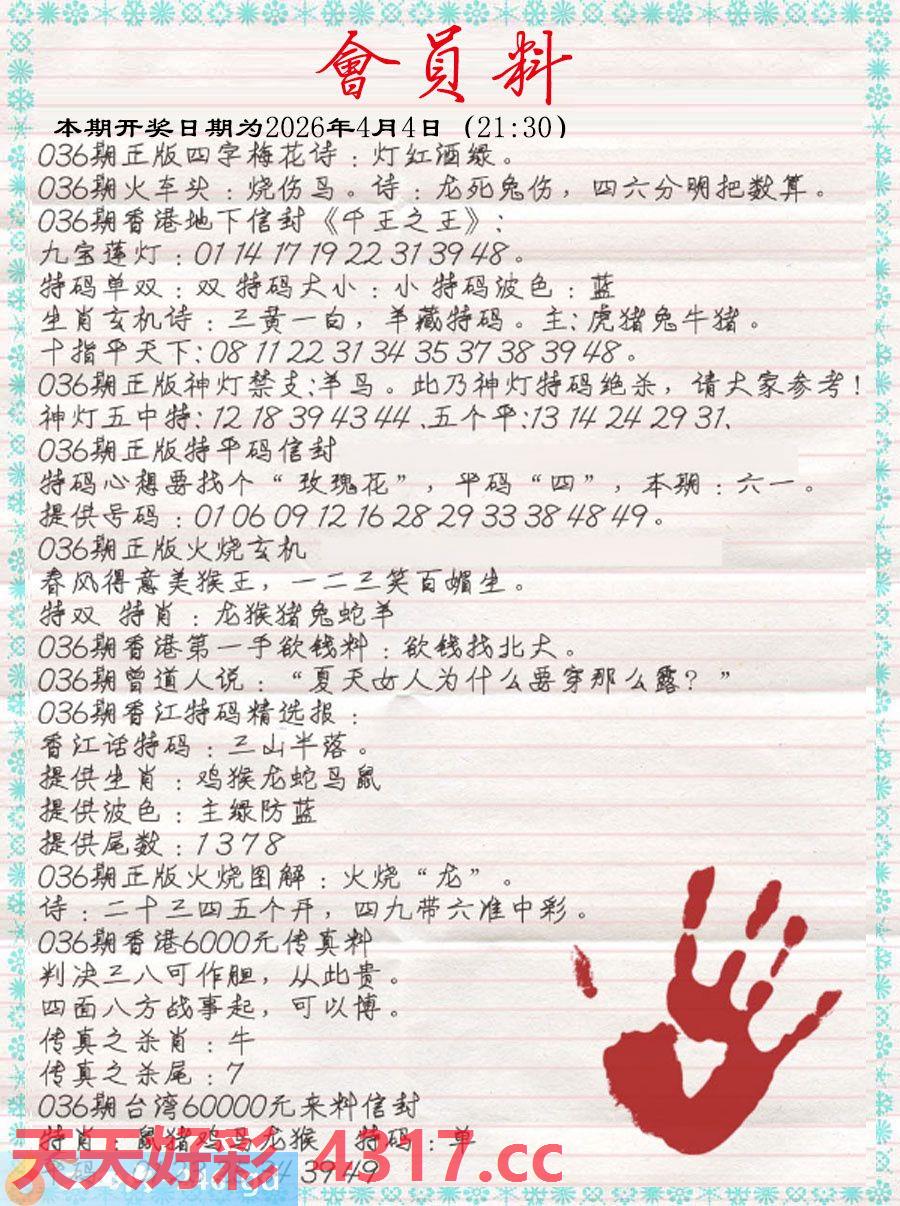 會員料
本期开奖日期为2026年4月4日（21:30）
036期正版四字梅花诗：灯红酒绿。
036期火车头：烧伤鸟。诗：龙死兔伤，四六分明把数算。
036期香港地下信封《千王之王》：
九宝莲灯：01 14 17 19 22 31 39 48。
特码单双：双 特码大小：小 特码波色：蓝
生肖玄机诗：三黄一白，羊藏特码。主：虎猪兔牛猪。
十指平天下：08 11 22 31 34 35 37 38 39 48。
036期正版神灯禁支：羊鸟。此乃神灯特码绝杀，请大家参考！
神灯五中特：12 18 39 43 44、五个平：13 14 24 29 31、
036期正版特平码信封
特码心想要找个“玫瑰花”，平码“四”，本期：六一。
提供号码：01 06 09 12 16 28 29 33 38 48 49。
036期正版火烧玄机
春风得意美猴王，一二三笑百媚生。
特双 特肖：龙猴猪兔蛇羊
036期香港第一手欲钱料：欲钱找北大。
036期曾道人说：“夏天女人为什么要穿那么露？”
036期香江特码精选报：
香江话特码：三山半落。
提供生肖：鸡猴龙蛇马鼠
提供波色：主绿防蓝
提供尾数：1 3 7 8
036期正版火烧图解：火烧“龙”。
诗：二十三四五个开，四九带六准中彩。
036期香港6000元传真料
判决三八可作胆，从此贵。
四面八方战事起，可以博。
传真之杀肖：牛
传真之杀尾：7
036期台湾60000元来料信封
特肖：鼠猪鸡马龙猴 特码：单
39 49
天天好彩 4317.cc